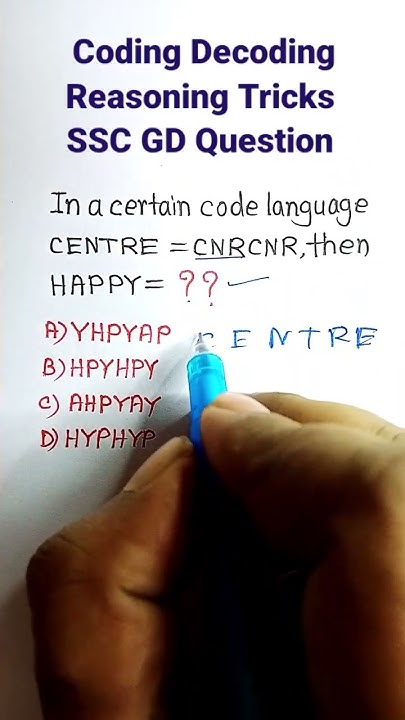 Coding Decoding
Reasoning Tricks
SSC GD Question
In a certain code language
CENTRE = CNRCNR, then
HAPPY = ??
A) YHPYAP
C E N T R E
B) HPYHPY
C) AHPYAY
D) HYPHYP